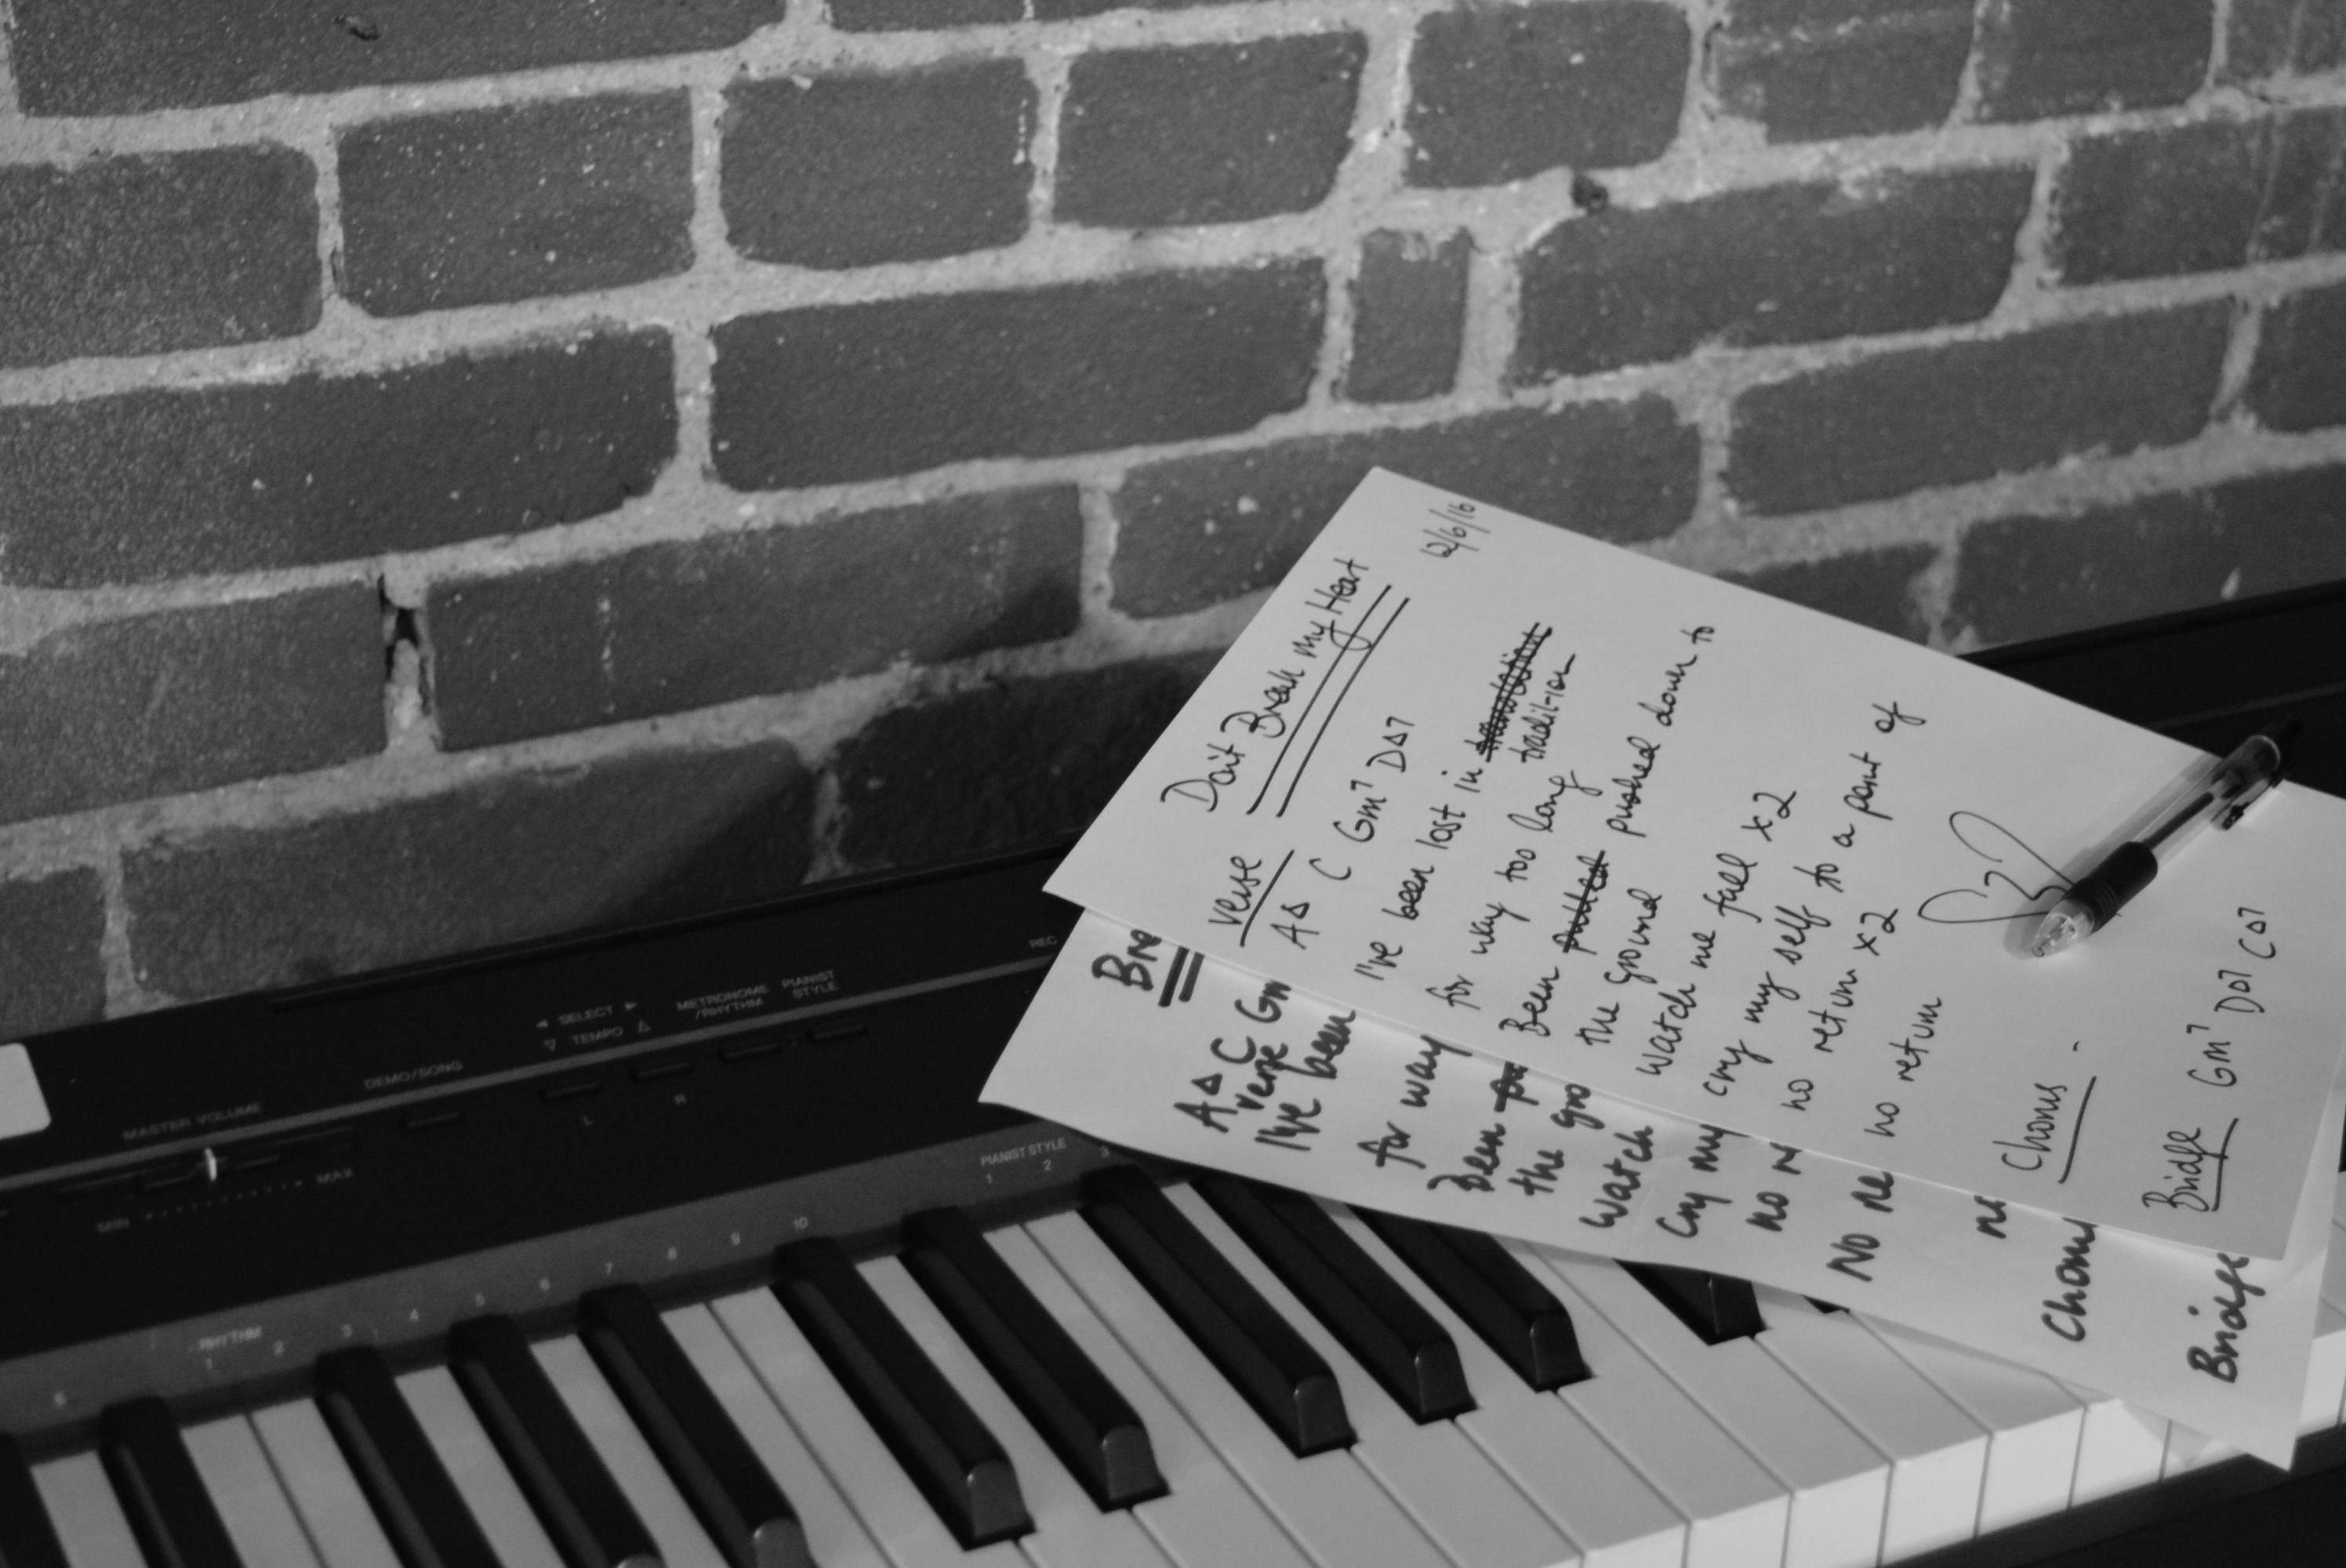 Don't Break My Heat
12/6/16
verse
A△ C Gm7 D△7
I've been lost in
tradit-ion
for way too long
Been pulled pushed down to
the ground
watch me fall x2
cry my self to a point of
no return x2
no return
Chorus -
Bridge Gm7 D△7 C△7
Bre
A△ C Gm
verse
I've been
for way
Been pu
the gro
watch
cry my
no r
No re
Bridge
REC
◄ SELECT ►
▽ TEMPO △
METRONOME
/RHYTHM
PIANIST
STYLE
DEMO/SONG
MASTER VOLUME
L
R
MIN
MAX
PIANIST STYLE
1 2 3
RHYTHM
6 1 2 3 4 5 6 7 8 9 10